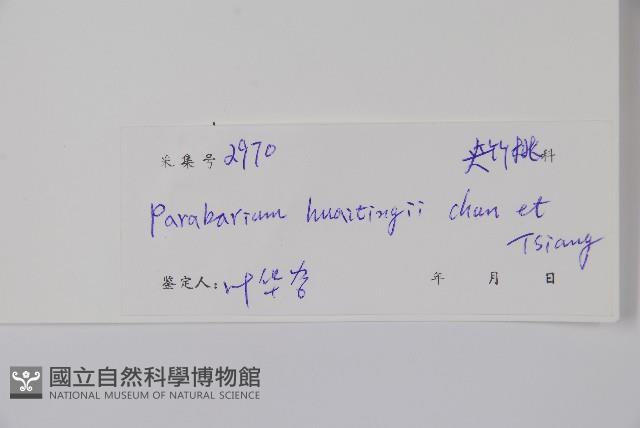 采集号 2970 夹竹桃科
Parabarium huaitingii chun et
Tsiang
鉴定人：叶华谷 年 月 日
國立自然科學博物館
NATIONAL MUSEUM OF NATURAL SCIENCE